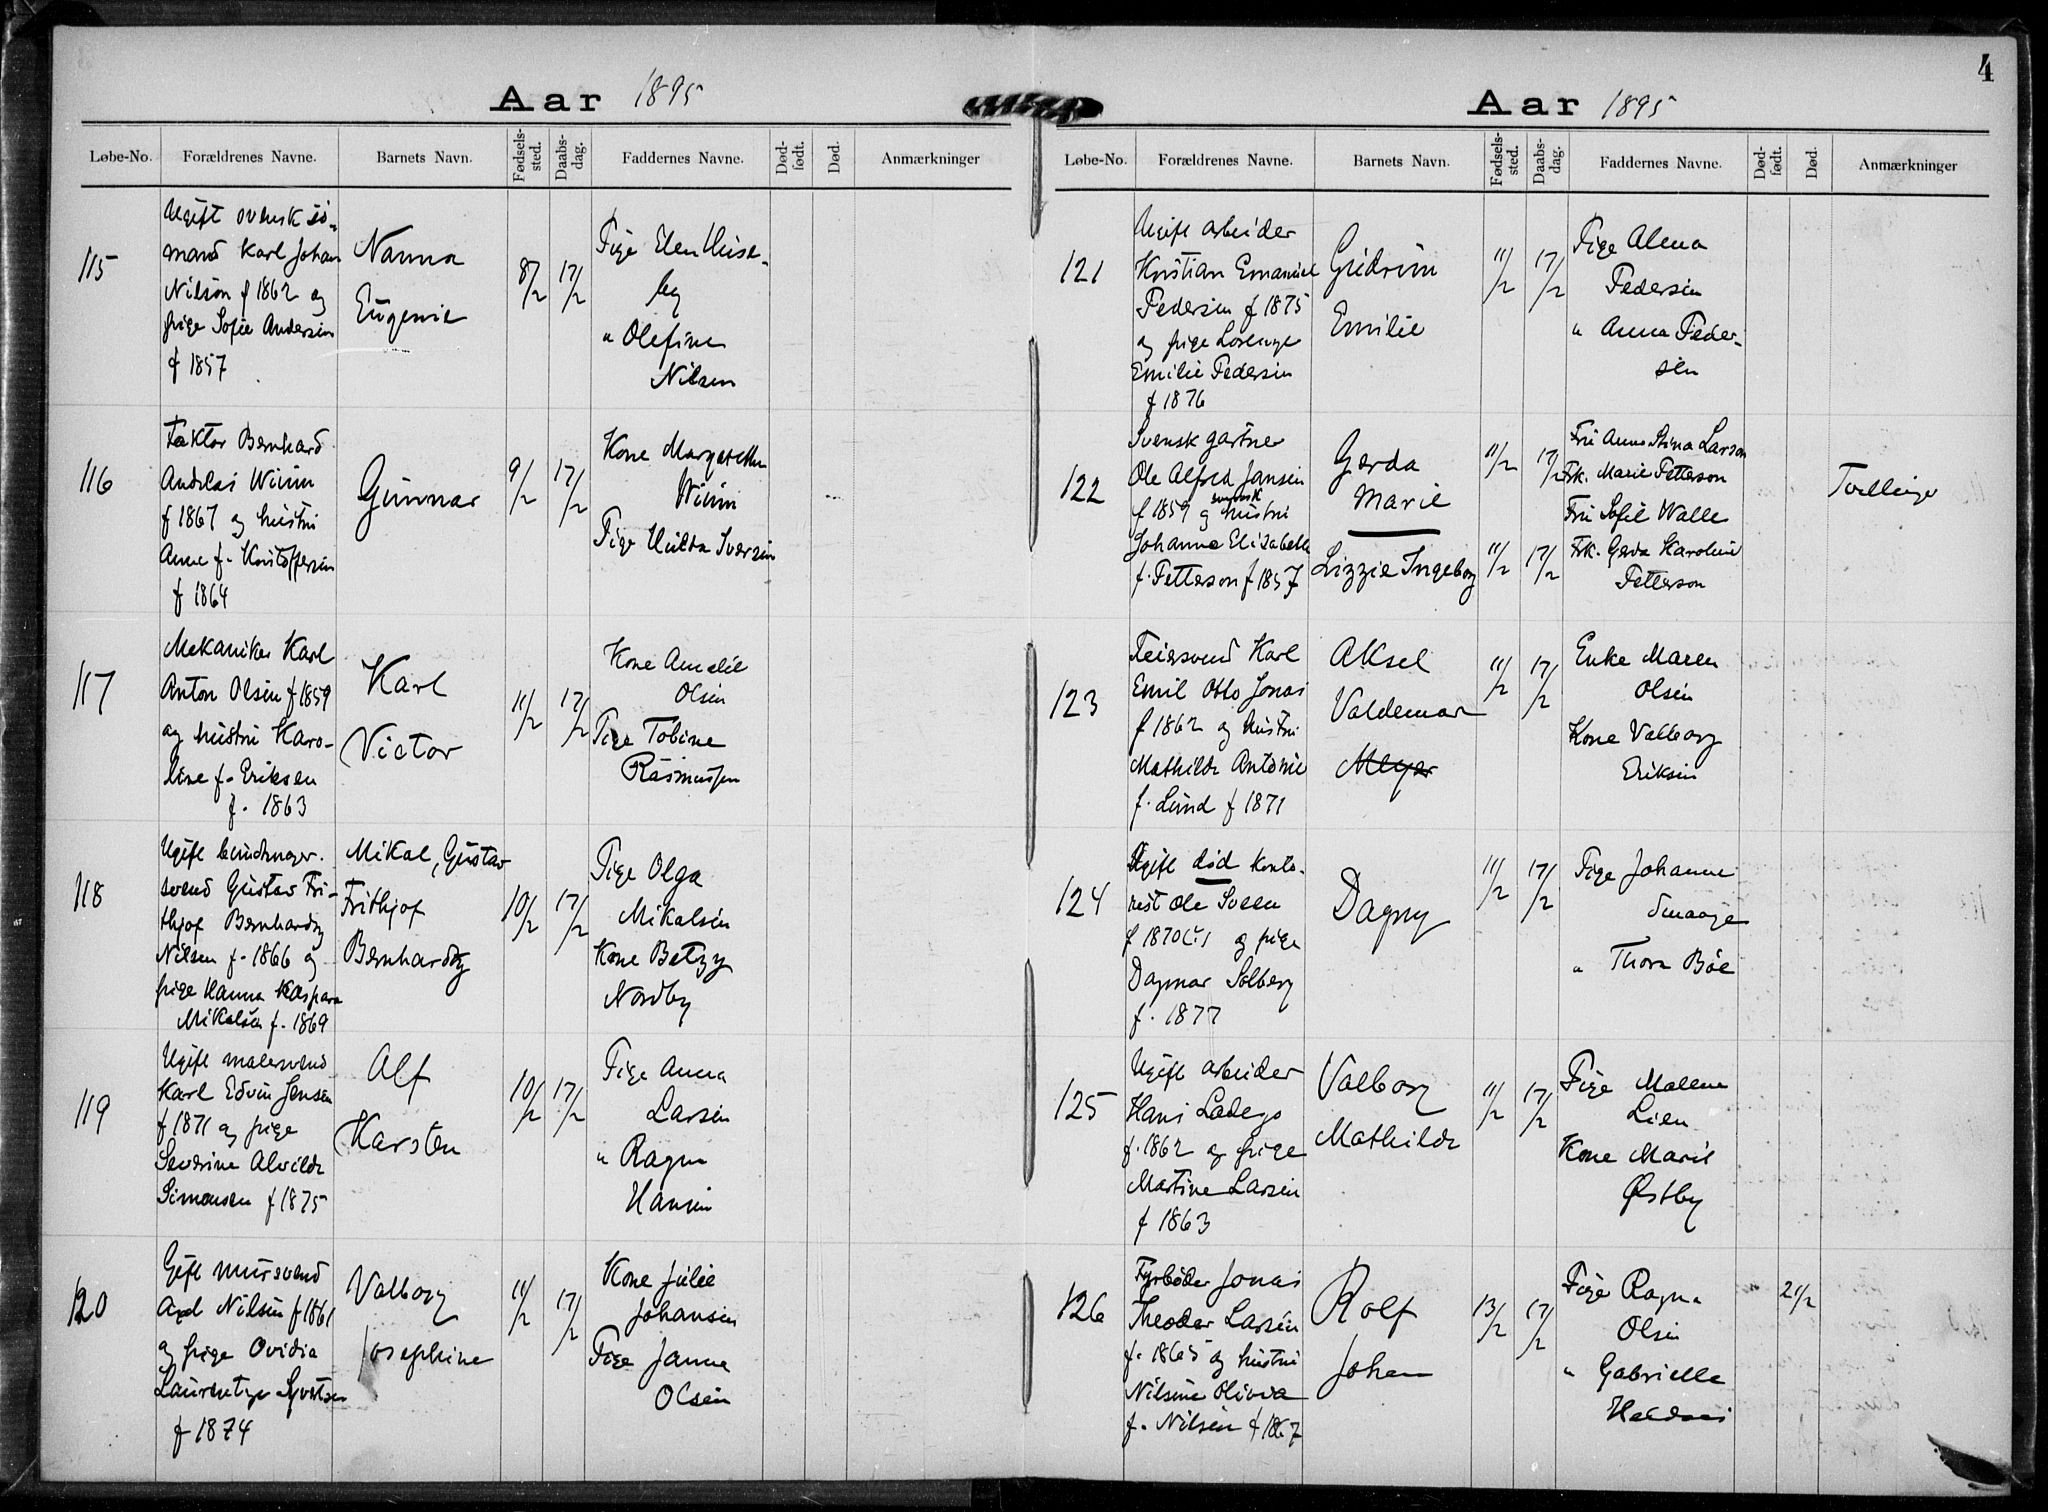 4
Aar 1895
Løbe-No. Forældrenes Navne. Barnets Navn. Fødsels-sted. Daabs-dag. Faddernes Navne. Død-født. Død. Anmærkninger
115
Ugift svensk sø-
mand Karl Johan
Nilson f 1862 og
pige Sofie Andersen
f 1857
Nanna
Eugenie
8/2 17/2
Pige Elen Huse-
by
" Olefine
Nilsen
116
Faktor Bernhard
Andreas Wiium
f 1867 og hustru
Anne f. Kristoffersen
f 1864
Gunnar
9/2 17/2
Kone Margarethe
Wiium
Pige Hulda Iversen
117
Mekaniker Karl
Anton Olsen f 1859
og hustru Karo-
line f. Eriksen
f. 1863
Karl
Victor
11/2 17/2
Kone Amalie
Olsen
Pige Tobine
Rasmussen
118
Ugift
svend Gustav Fri-
thjof Bernhardy
Nilsen f. 1866 og
pige Hanna Kaspara
Mikalsen f. 1869
Mikal, Gustav
Frithjof
Bernhardy
10/2 17/2
Pige Olga
Mikalsen
Kone Betzy
Nordby
119
Ugift malersvend
Karl Edvin Jensen
f 1871 og pige
Severine Alvilde
Simonsen f 1875
Alf
Karsten
10/2 17/2
Pige Anna
Larsen
" Ragna
Hansen
120
Gift mursvend
Axel Nilsen f 1861
og pige Ovidia
Laurentze
f 1874
Valborg
Josephine
11/2 17/2
Kone Julie
Johansen
Pige Janna
Olsen
Aar 1895
Løbe-No. Forældrenes Navne. Barnets Navn. Fødsels-sted. Daabs-dag. Faddernes Navne. Død-født. Død. Anmærkninger
121
Ugift arbeider
Kristian Emanuel
Pedersen f 1875
og pige Lorense
Emilie Pedersen
f 1876
Gudrun
Emilie
11/2 17/2
Pige Alma
Pedersen
" Anna Peder-
sen
122
Svensk gartner
Ole Alfred Jansen
f 1859 og svensk hustru
Johanne Elisabeth
f. Petterson f 1857
Gerda
Marie
Lizzie Ingeborg
11/2 17/2
11/2 17/2
Fru Anna Stina Larson
Frk. Marie Petterson
Fru Sofie Walle
Frk. Gerda Karoline
Petterson
Tvillinger
123
Feiersvend Karl
Emil Otto Jonas
f 1862 og hustru
Mathilde Antonie
f. Lund f 1871
Aksel
Valdemar
Meyer
11/2 17/2
Enke Maren
Olsen
Kone Valborg
Eriksen
124
Ugift død konto-
rist Ole Sveen
f 1870(?) og pige
Dagmar Solberg
f. 1877
Dagny
11/2 17/2
Pige Johanne
Smaage
" Thora Bøe
125
Ugift arbeider
Hans Ladego
f. 1862 og pige
Martine Larsen
f 1863
Valborg
Mathilde
11/2 17/2
Pige Malene
Lien
Kone Marie
Østby
126
Fyrbøder Jonas
Theodor Larsen
f. 1865 og hustru
Nilsine Olivia
f. Nilsen f 1867
Rolf
Johan
13/2 17/2
Pige Ragna
Olsen
" Gabrielle
21/2